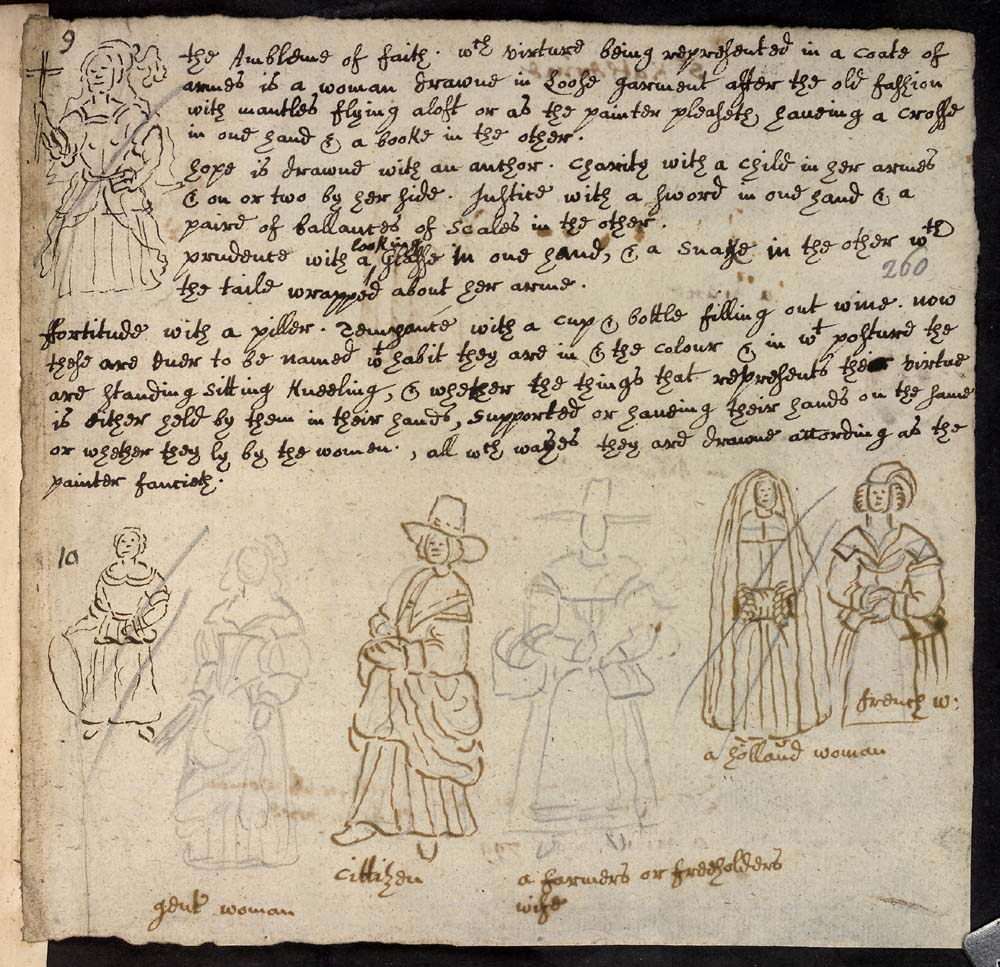 9
the Ambleme of faith. wth virture being represented in a coate of
armes is a woman drawne in Loose garment after the old fashion
with mantles flying aloft or as the painter pleaseth, haueing a crosse
in one hand & a booke in the other.
hope is drawne with an anchor. charity with a child in her armes
& on or two by her side. Justice with a sword in one hand & a
paire of ballances of scales in the other.
prudence with a looking glasse in one hand, & a snake in the other wth
260
the taile wrapped about her arme.
ffortitude with a piller. Temperance with a cup & bottle filling out wine. now
these are euer to be named wt habit they are in & the colour & in wt posture the
are standing sitting kneeling, & whether the things that represents their virtue
is either held by them in their hands, supported or haueing their hands on the same
or whether they ly by the women., all wch wayes they are drawne according as the
painter fancieth.
10
french w:
a holland woman
cittizen
a farmers or freeholders
wife
gent woman